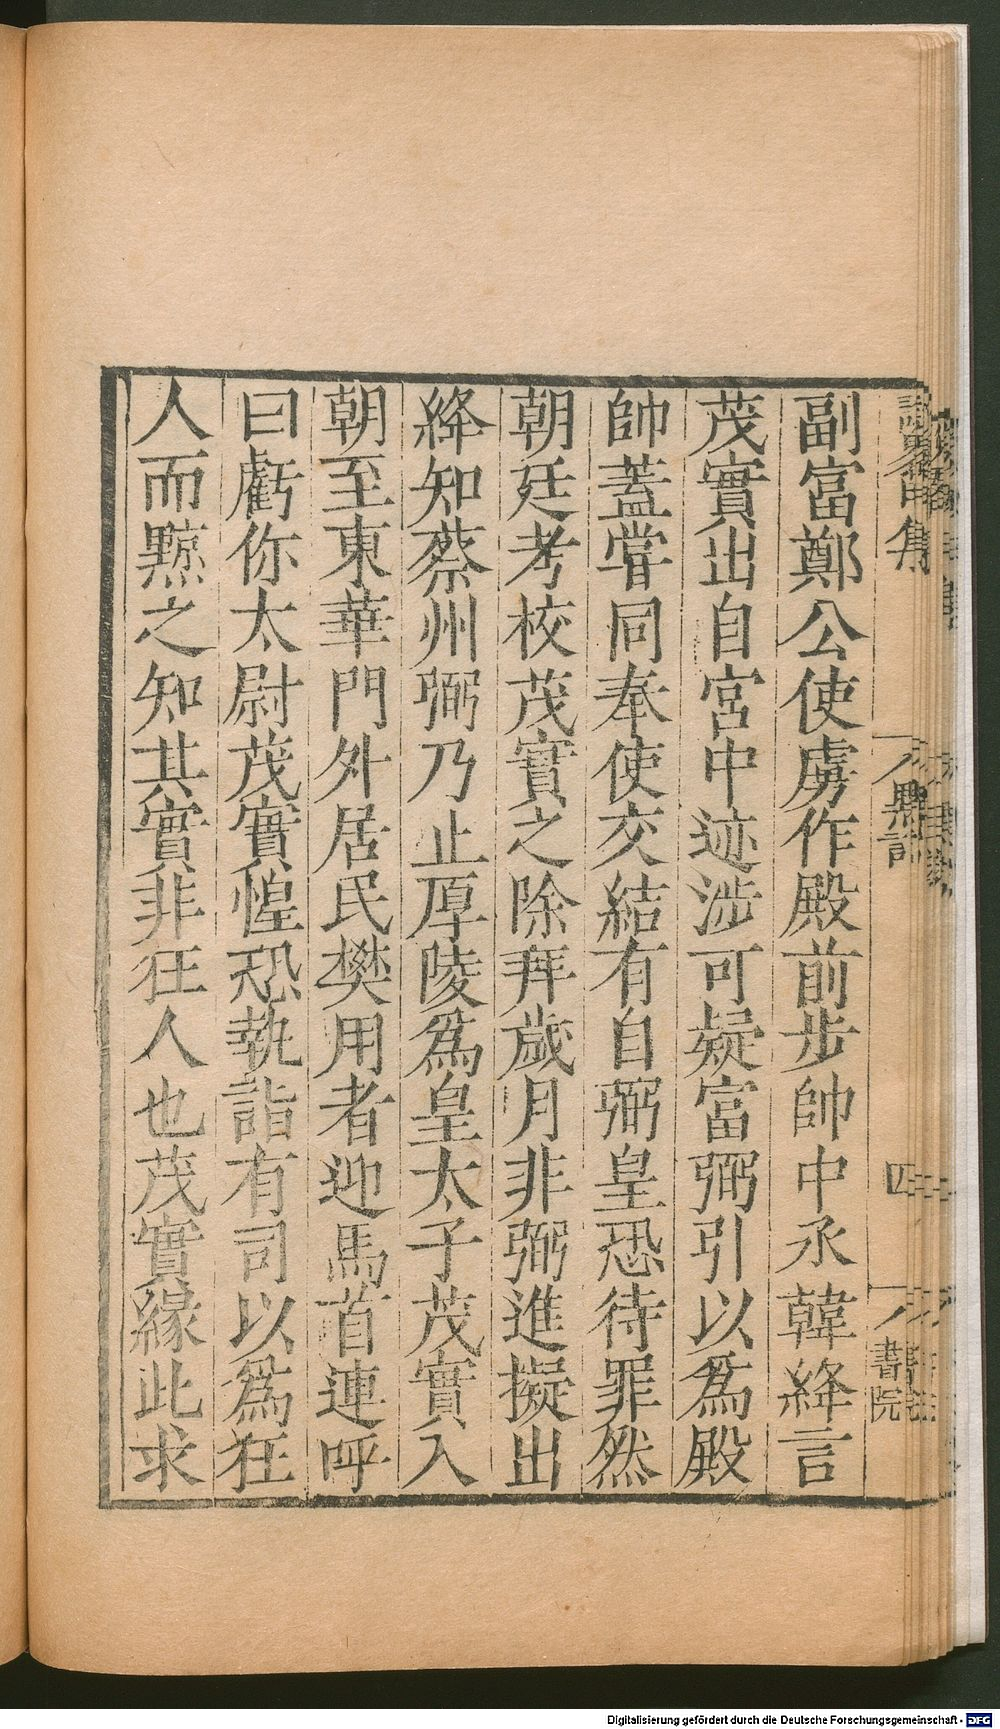 副富鄭公使虜作殿前步帥中丞韓絳言
茂實出自宮中迹涉可疑富弼引以爲殿
帥蓋甞同奉使交結有自弼皇恐待罪然
朝廷考校茂實之除拜歲月非弼進擬出
絳知蔡州弼乃止厚陵爲皇太子茂實入
朝至東華門外居民樊用者迎馬首連呼
曰虧你太尉茂實惶恐執詣有司以爲狂
人而黥之知其實非狂人也茂實緣此求
四
書院
Digitalisierung gefördert durch die Deutsche Forschungsgemeinschaft - DFG